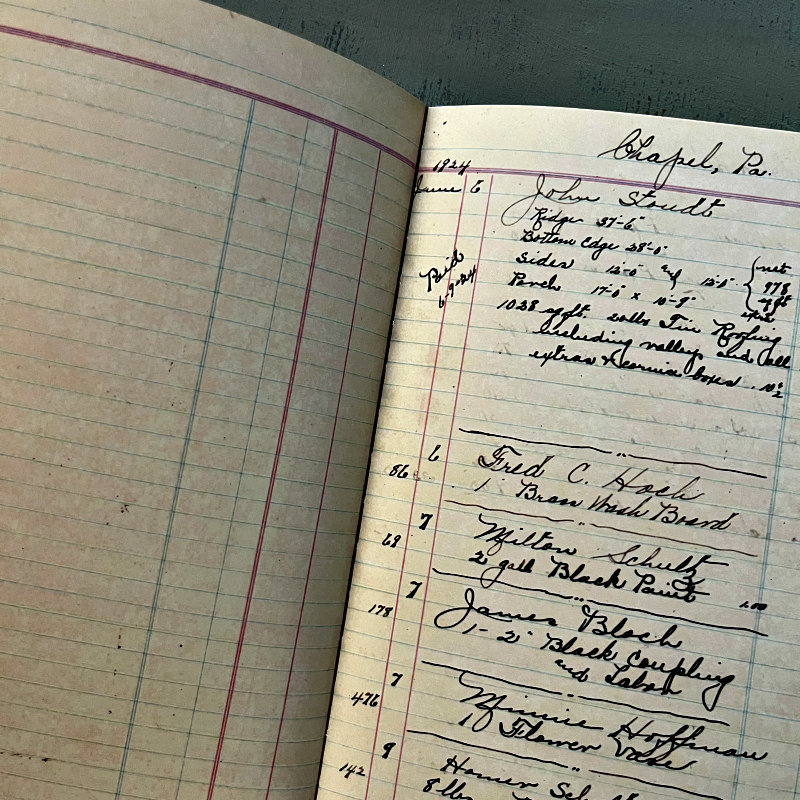 Chapel, Pa.
1924
June 6 John Stoudt
Ridge 37'-6"
Bottom Edge 28'-0"
Sides 12'-0" and 12'-0" { net
Paid Porch 17'-0" x 10'-9" 978
6-9-24 sq ft
1028 sq ft. Tin Roofing
including valleys and all
extras & cornice boxes . 10½
6 Fred C. Hoch
86 1 Brass Wash Board
7 Milton Schultz
69 2 gall Black Paint 1.00
7 James Bloch
178 1 - 2" Black Coupling
and Labor
7 Minnie Hoffman
476 1 Flower Vase
9 Homer
142 8 lbs